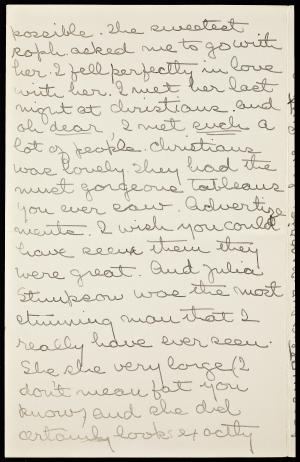 possible. The sweetest
soph. asked me to go with
her. I fell perfectly in love
with her. I met her last
night at Christians. and
oh dear, I met such a
lot of people. Christians
was lovely. They had the
most gorgeous Tableaus
you ever saw. Advertize
ments. I wish you could
have seen them they
were great. And Julia
Stimpson was the most
stunning man that I
really have ever seen.
She she very large (I
don't mean fat you
know) and she did
certainly look exactly